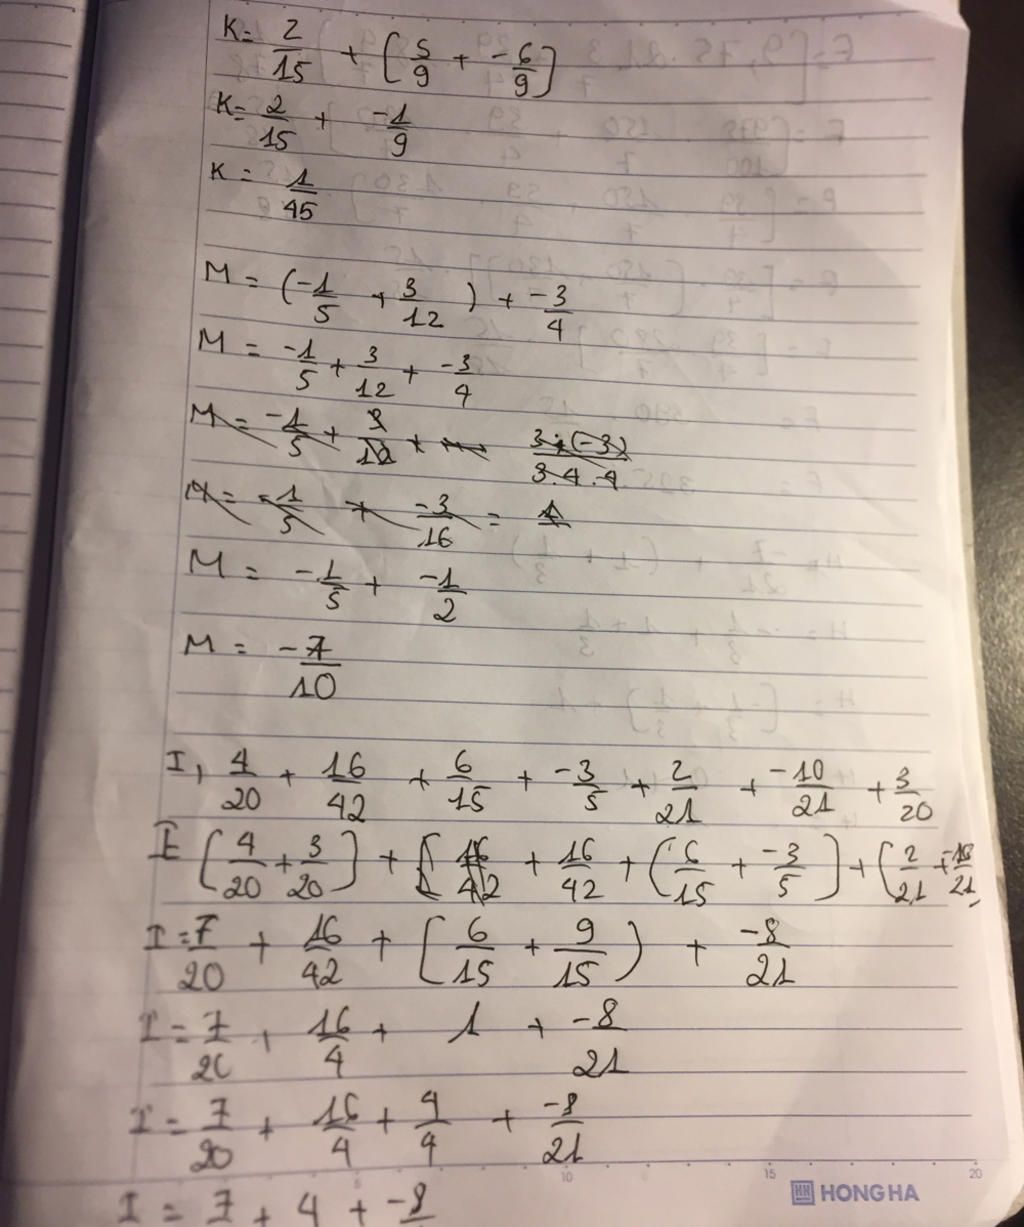 K = 2/15 + [5/9 + -6/9]
K = 2/15 + -1/9
K = 1/45
M = (-1/5 + 3/12) + -3/4
M = -1/5 + 3/12 + -3/4
M = -1/5 + 3/12 + 3·(-3)/3.4.4
M = -1/5 + -3/16 =
M = -1/5 + -1/2
M = -7/10
I, 4/20 + 16/42 + 6/15 + -3/5 + 2/21 + -10/21 + 3/20
I [4/20 + 3/20] + [16/42 + 16/42 + (6/15 + -3/5] + (2/21 + -10/21
I = 7/20 + 16/42 + [6/15 + 9/15) + -8/21
I = 7/20 + 16/4 + 1 + -8/21
I = 7/20 + 16/4 + 4/4 + -8/21
I = 7 + 4 + -8
HONG HA
10 15 20